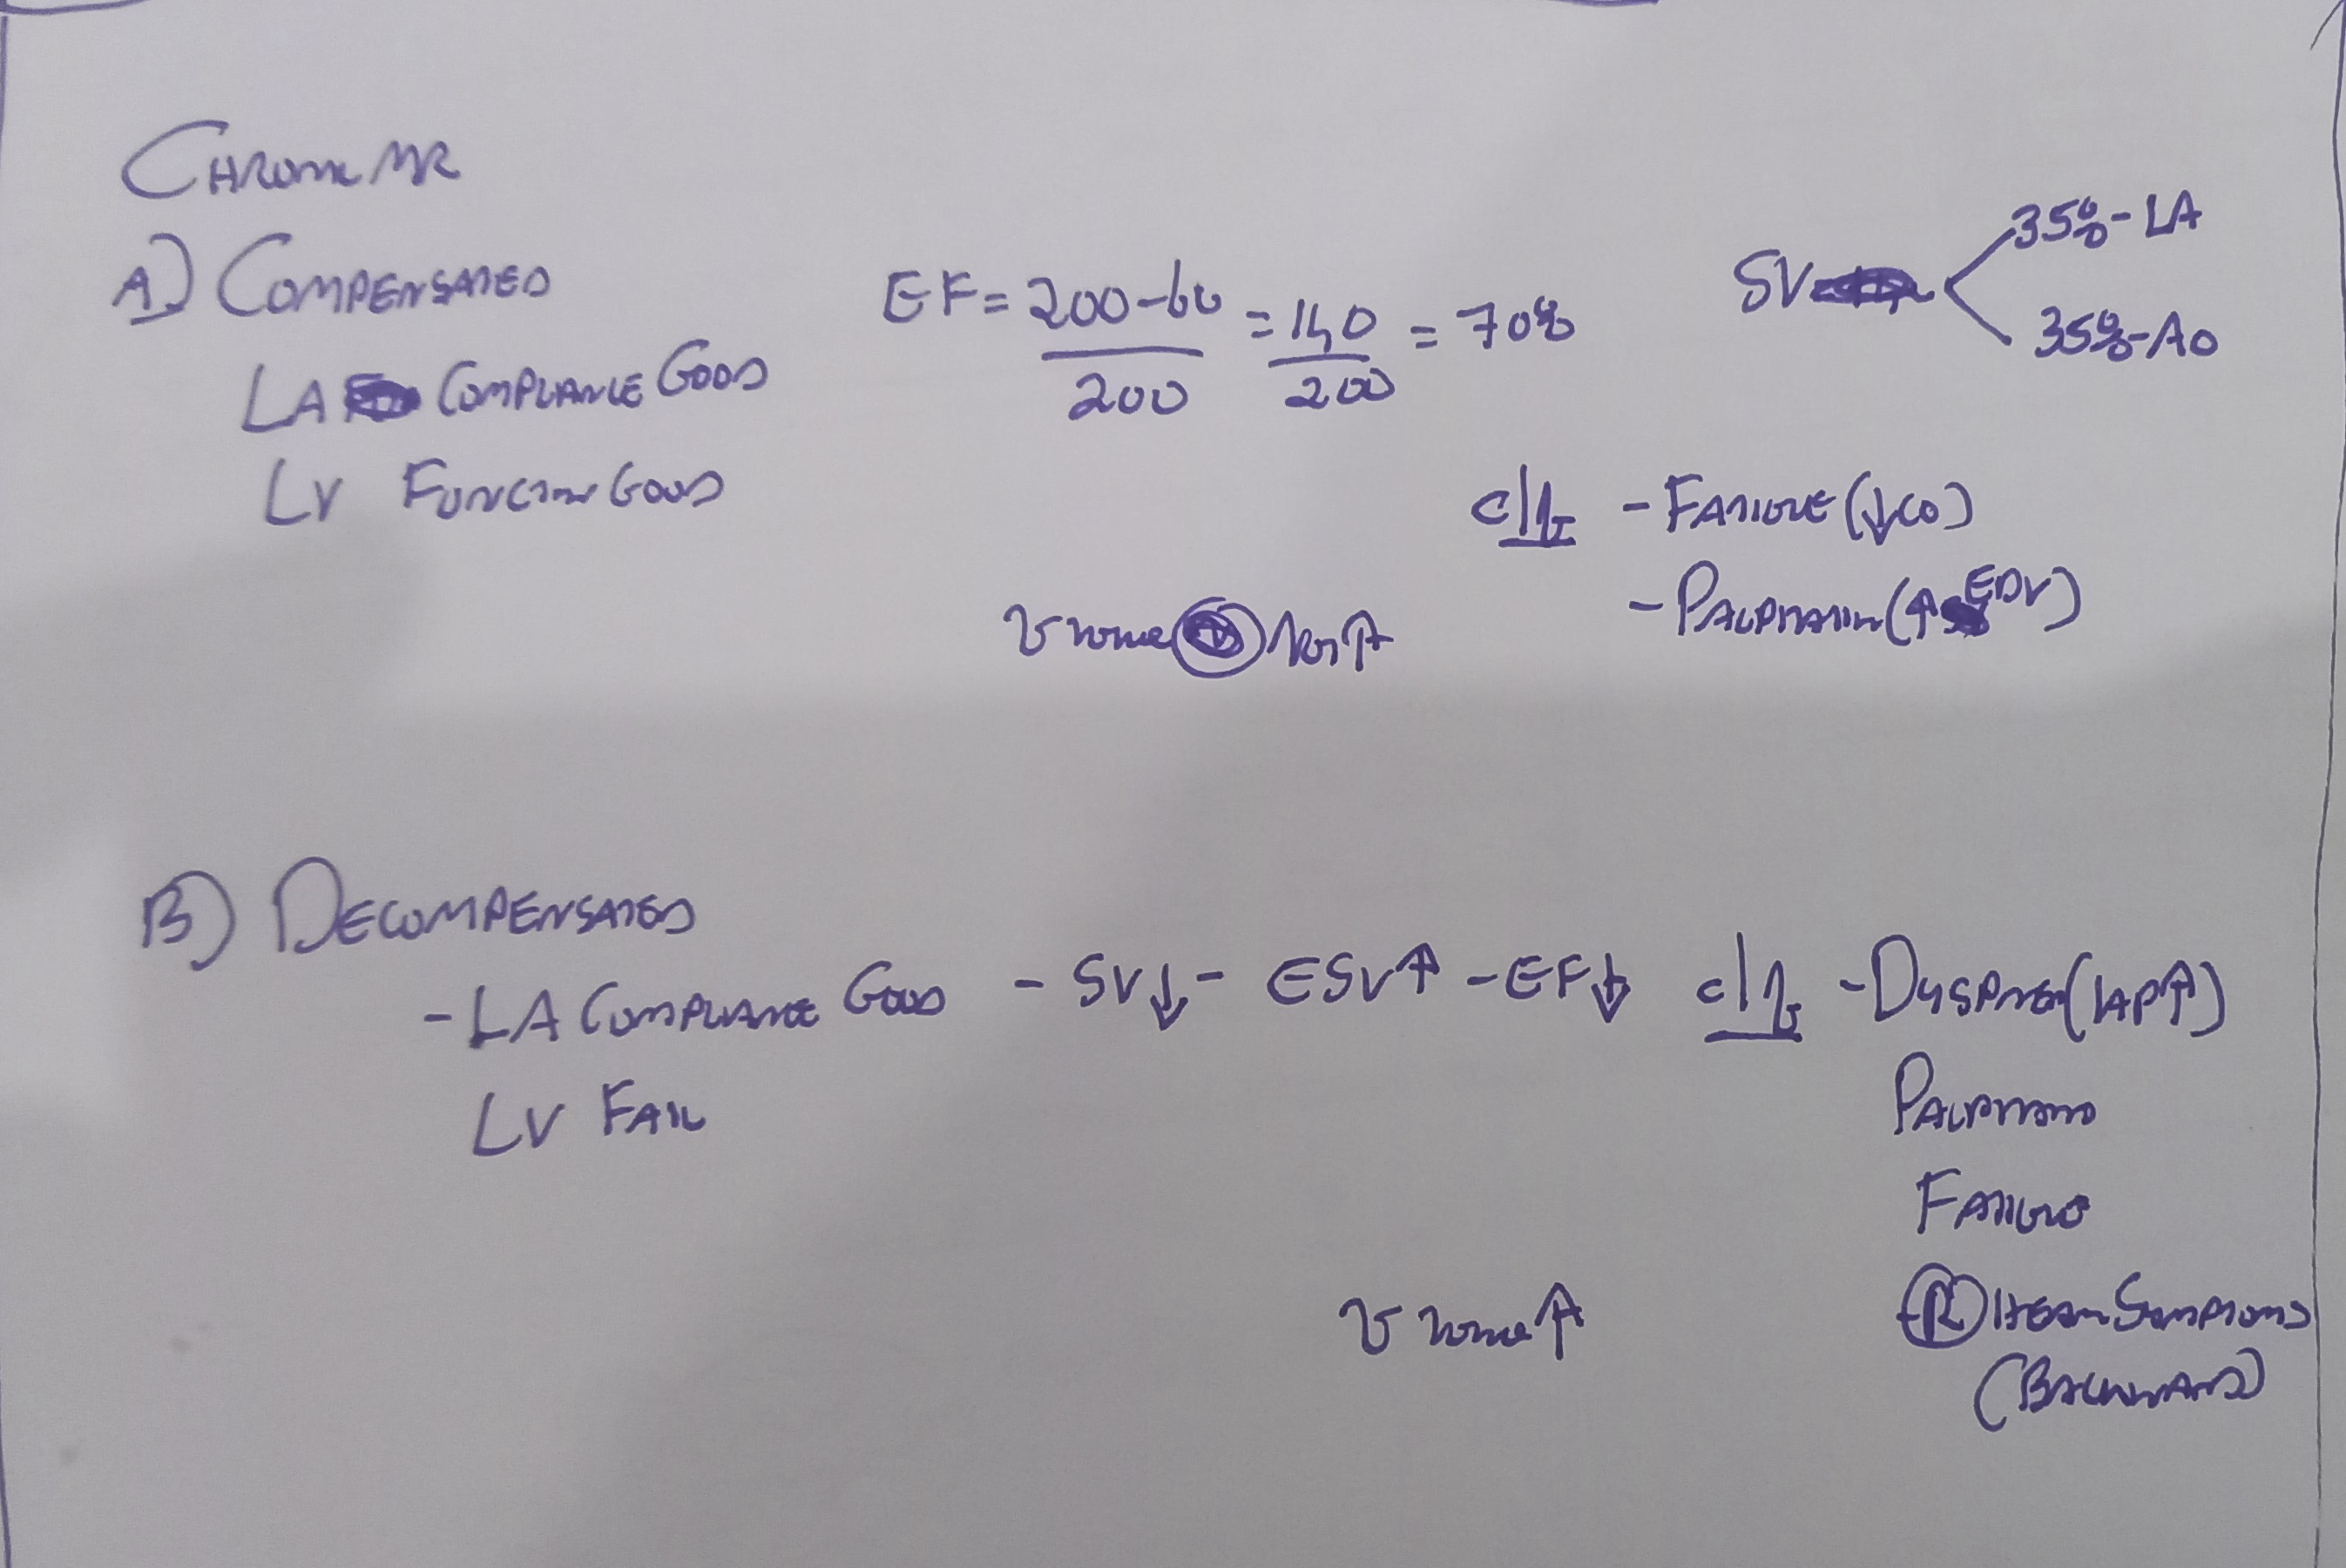 CHRONIC MR
A) COMPENSATED
LA COMPLIANCE GOOD
LV FUNCTION GOOD
EF = 200-60 = 140 = 70%
200 200
SV 35%-LA
35%-AO
c/f - FATIGUE (↓CO)
- PALPITATION (↑ EDV)
v wave Not ↑
B) DECOMPENSATED
- LA COMPLIANCE GOOD - SV↓ - ESV↑ - EF↓ c/f - DYSPNEA (LAP↑)
LV FAIL
PALPITATION
FATIGUE
v wave ↑
(R) HEART SYMPTOMS
(BACKWARD)